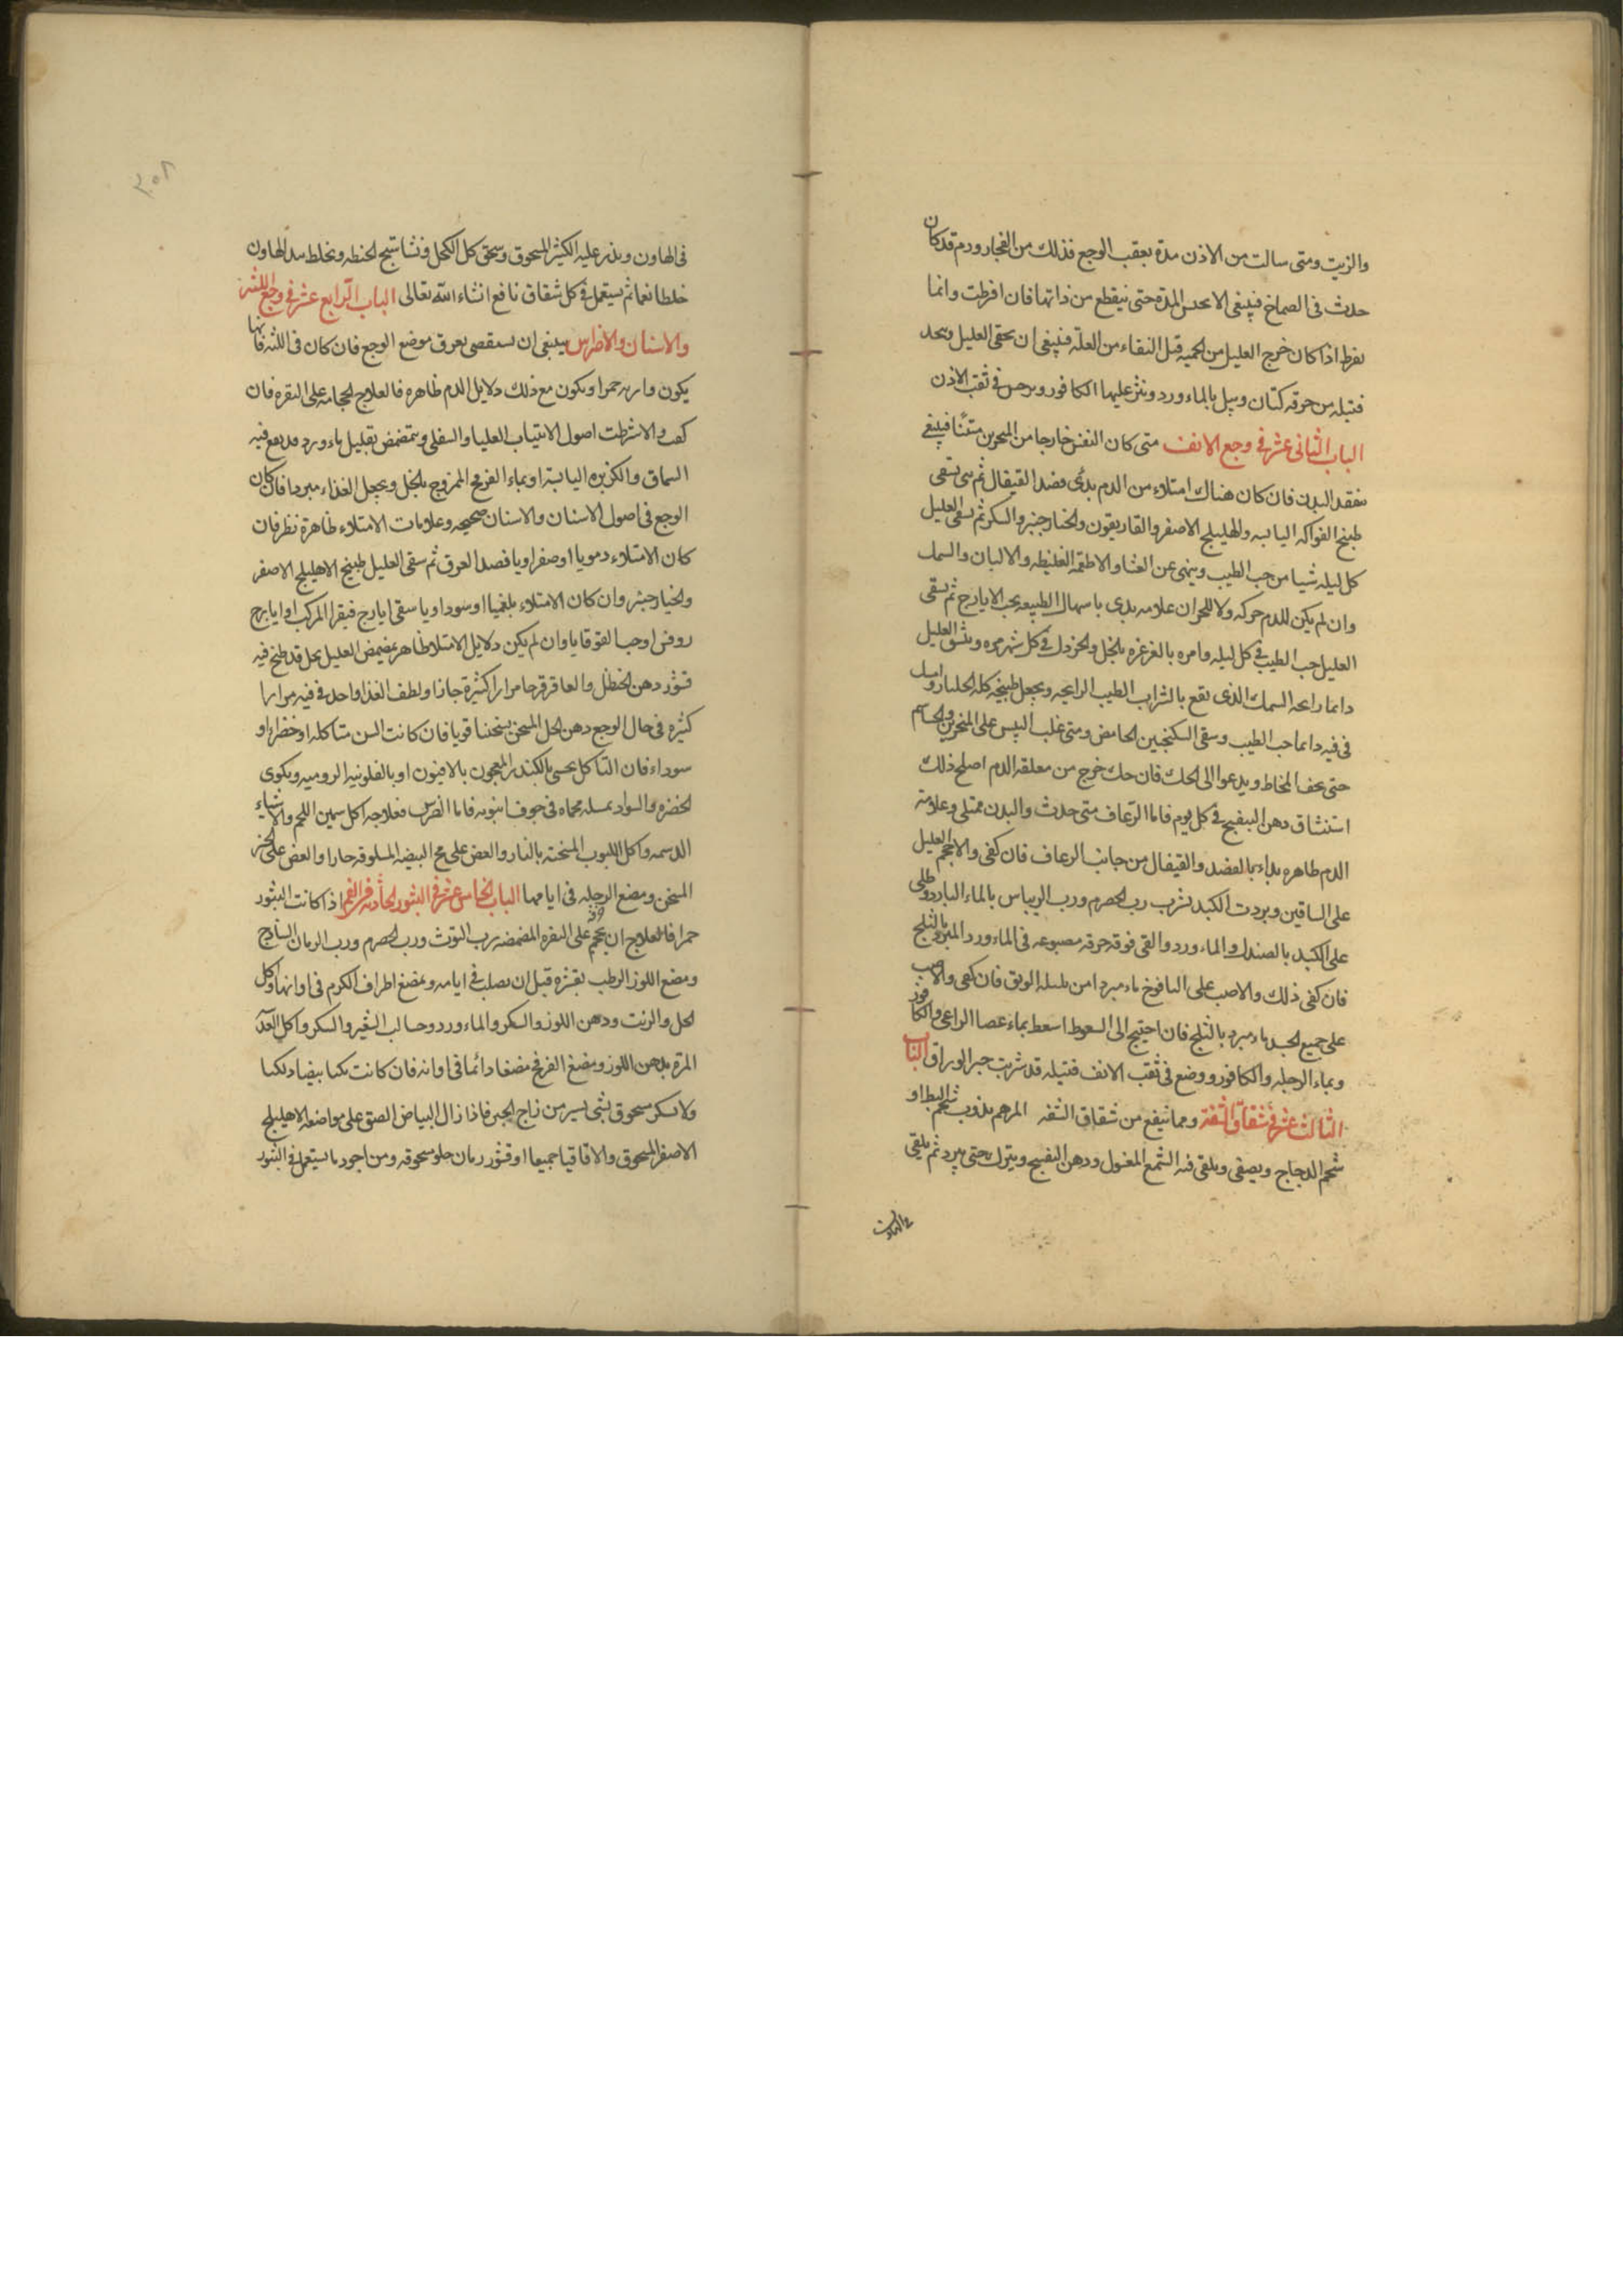 والزيت ومتى سالت من الاذن مدة بعقب الوجع فذلك من انفجار ورم قد كان
حدث فى الصماخ فينبغى الا تحبس المدة حتى ينقطع من ذاتها فان افرطت وانما
تفرط اذا كان خرج العليل من الحميه قبل النقاء من العلة فينبغى ان يحقى العليل وتحد
فتيله من خرقه كتان وتبل بالماء ورد وينثر عليها الكافور وبرحس فى ثقب الاذن
الباب الثانى عشر فى وجع الانف متى كان النفس خارجا من المنخرين منتنا فينبغى
تفقد البدن فان كان هناك امتلاء من الدم بدئ بفصد القيفال ثم سقى
طبيخ الفواكه اليابسه والهليلج الاصفر والغاريقون والخيار جنبر والسكر ثم يسقى العليل
كل ليله شيا من حب الطيب وينهى عن العشا والاطعمة الغليظه والالبان والسمك
وان لم يكن للدم حركه ولا للحمران علامه بدى باسهال الطبيعه بحب الايارج ثم يسقى
العليل حب الطيب فى كل ليله وامره بالغرغره بالخل والخردل فى كل شهر مره وينشق العليل
دايما رايحه السمك الذى نقع بالشراب الطيب الرايحه ويجعل طبيخه كله الحلبا
فى فيه دايما حب الطيب وسقى السكنجبين الحامض ومتى غلب اليبس على المنخرين
حتى يجف المخاط ويدعوا الى الحك فان حك خرج من معلقه الدم اصلح ذلك
استنشاق دهن البنفسج فى كل يوم فاما الرعاف متى حدث والبدن ممتلى وعلامة
الدم ظاهره بداء بالفصد والقيفال من جانب الرعاف فان كفى والا حجم العليل
على الساقين وبردت الكبد بشرب رب الحصرم ورب الريباس بالماء البارد وطلى
على الكبد بالصندل والماء ورد والقى فوقه خرقه مصبوغه فى الماء ورد المبرد بالثلج
فان كفى ذلك والا صب على اليافوخ ماء مبردا من فان كفى والا صب
على جميع الجسد ماء مبرد بالثلج فان احتيج الى السعوط اسعط بماء عصا الراعى والكافور
وبماء الرجله والكافور ووضع فى ثقب الانف فتيله قد شربت حبر الوراق الباب
الثالث عشر فى شقاق الشفة ومما ينفع من شقاق الشفه المرهم يذوب شحم البط او
شحم الدجاج ويصفى ويلقى فيه الشمع المغسول ودهن البنفسج ويترك حتى يبرد ثم يلقى
فى الهاون
فى الهاون ويذر عليه الكثير المسحوق وسحق كل الكحل ونشاستج الحنطه ويخلط بيد الهاون
خلطا نعما ثم يستعمل فى كل شقاق نافع انشاء الله تعالى الباب الرابع عشر فى وجع اللثة
والاسنان والاضراس ينبغى ان يستقصى تعرف موضع الوجع فان كان فى اللثه فانها
يكون وارمه حمرا ويكون مع ذلك دلايل الدم ظاهره فالعلاج الحجامه على النقره فان
كفت والا شرطت اصول الانياب العليا والسفلى ويتمضمض بقليل ماء ورد قد نقع فيه
السماق والكزبره اليابسة او بماء القرع الممزوج بالخل ويجعل الغذاء مبردا فان كان
الوجع فى اصول الاسنان والاسنان صحيحه وعلامات الامتلاء ظاهرة نظر فان
كان الامتلاء دمويا او صفراويا فصد العرق ثم سقى العليل طبيخ الاهليلج الاصفر
والخيار جنبر وان كان الامتلاء بلغميا او سوداويا سقى ايارج فيقرا المركب او ايارج
روفس او حب القوقايا وان لم يكن دلايل الامتلا ظاهره يمضمض العليل بخل قد طبخ فيه
قشور دهن الحنظل والعاقرقرحا مرارا كثيرة حارا ولطف الغذا واخد فى فيه مرارا
كثيره فى حال الوجع دهن الخل المسخن تسخينا قويا فان كانت السن متاكله او خضراء او
سوداء فان التاكل يحسى بالكندر المعجون بالافيون او بالفلونيه الروميه ويكوى
الخضره والسواد بمسله محماه فى جوف انبوبه فاما الضرس فعلاجه اكل سمين اللحم والاشياء
الدسمه واكل اللبوب المسخنه بالنار والعض على مح البيضه المسلوقه حارا والعض على الخبز
المسخن ومضغ الرجله فى ايامها الباب الخامس عشر فى البثور الحادثه فى الفم اذا كانت البثور
حمرا فالعلاج ان يحجم على النقره المضمضه برب التوث ورب الحصرم ورب الرمان الساذج
ومضغ اللوز الرطب بقشره قبل ان يصلب فى ايامه ويمضغ اطراف الكرم فى اوانها واكل
الخل والزيت ودهن اللوز والسكر والماء ورد وحسا لب الشعير والسكر واكل
المزة بدهن اللوز ومضغ القرع مضغا دائما فى اوانه فان كانت بيضا دلكها
ولا بسكر مسحوق بشى يسير من زاج الحبر فاذا زال البياض الصق على مواضعه الاهليلج
الاصفر المسحوق والاقاقيا جميعا او قشور رمان حلو مسحوقه ومن اجود ما يستعمل فى البثور